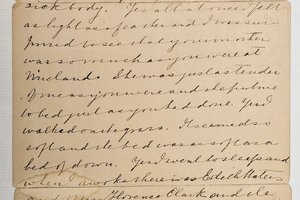 sick body. Yes all at once I felt
as light as a feather and I was sur-
prised to see that your mother
was so much as you were at
Vineland. She was just as tender
of me as you were and she put me
to bed just as you had done. Yes I
walked on the grass. It seemed so
soft and the bed was as soft as a
bed of down. Yes I went to sleep and
when I awoke there was Edith
and Miss Florence Clark and de